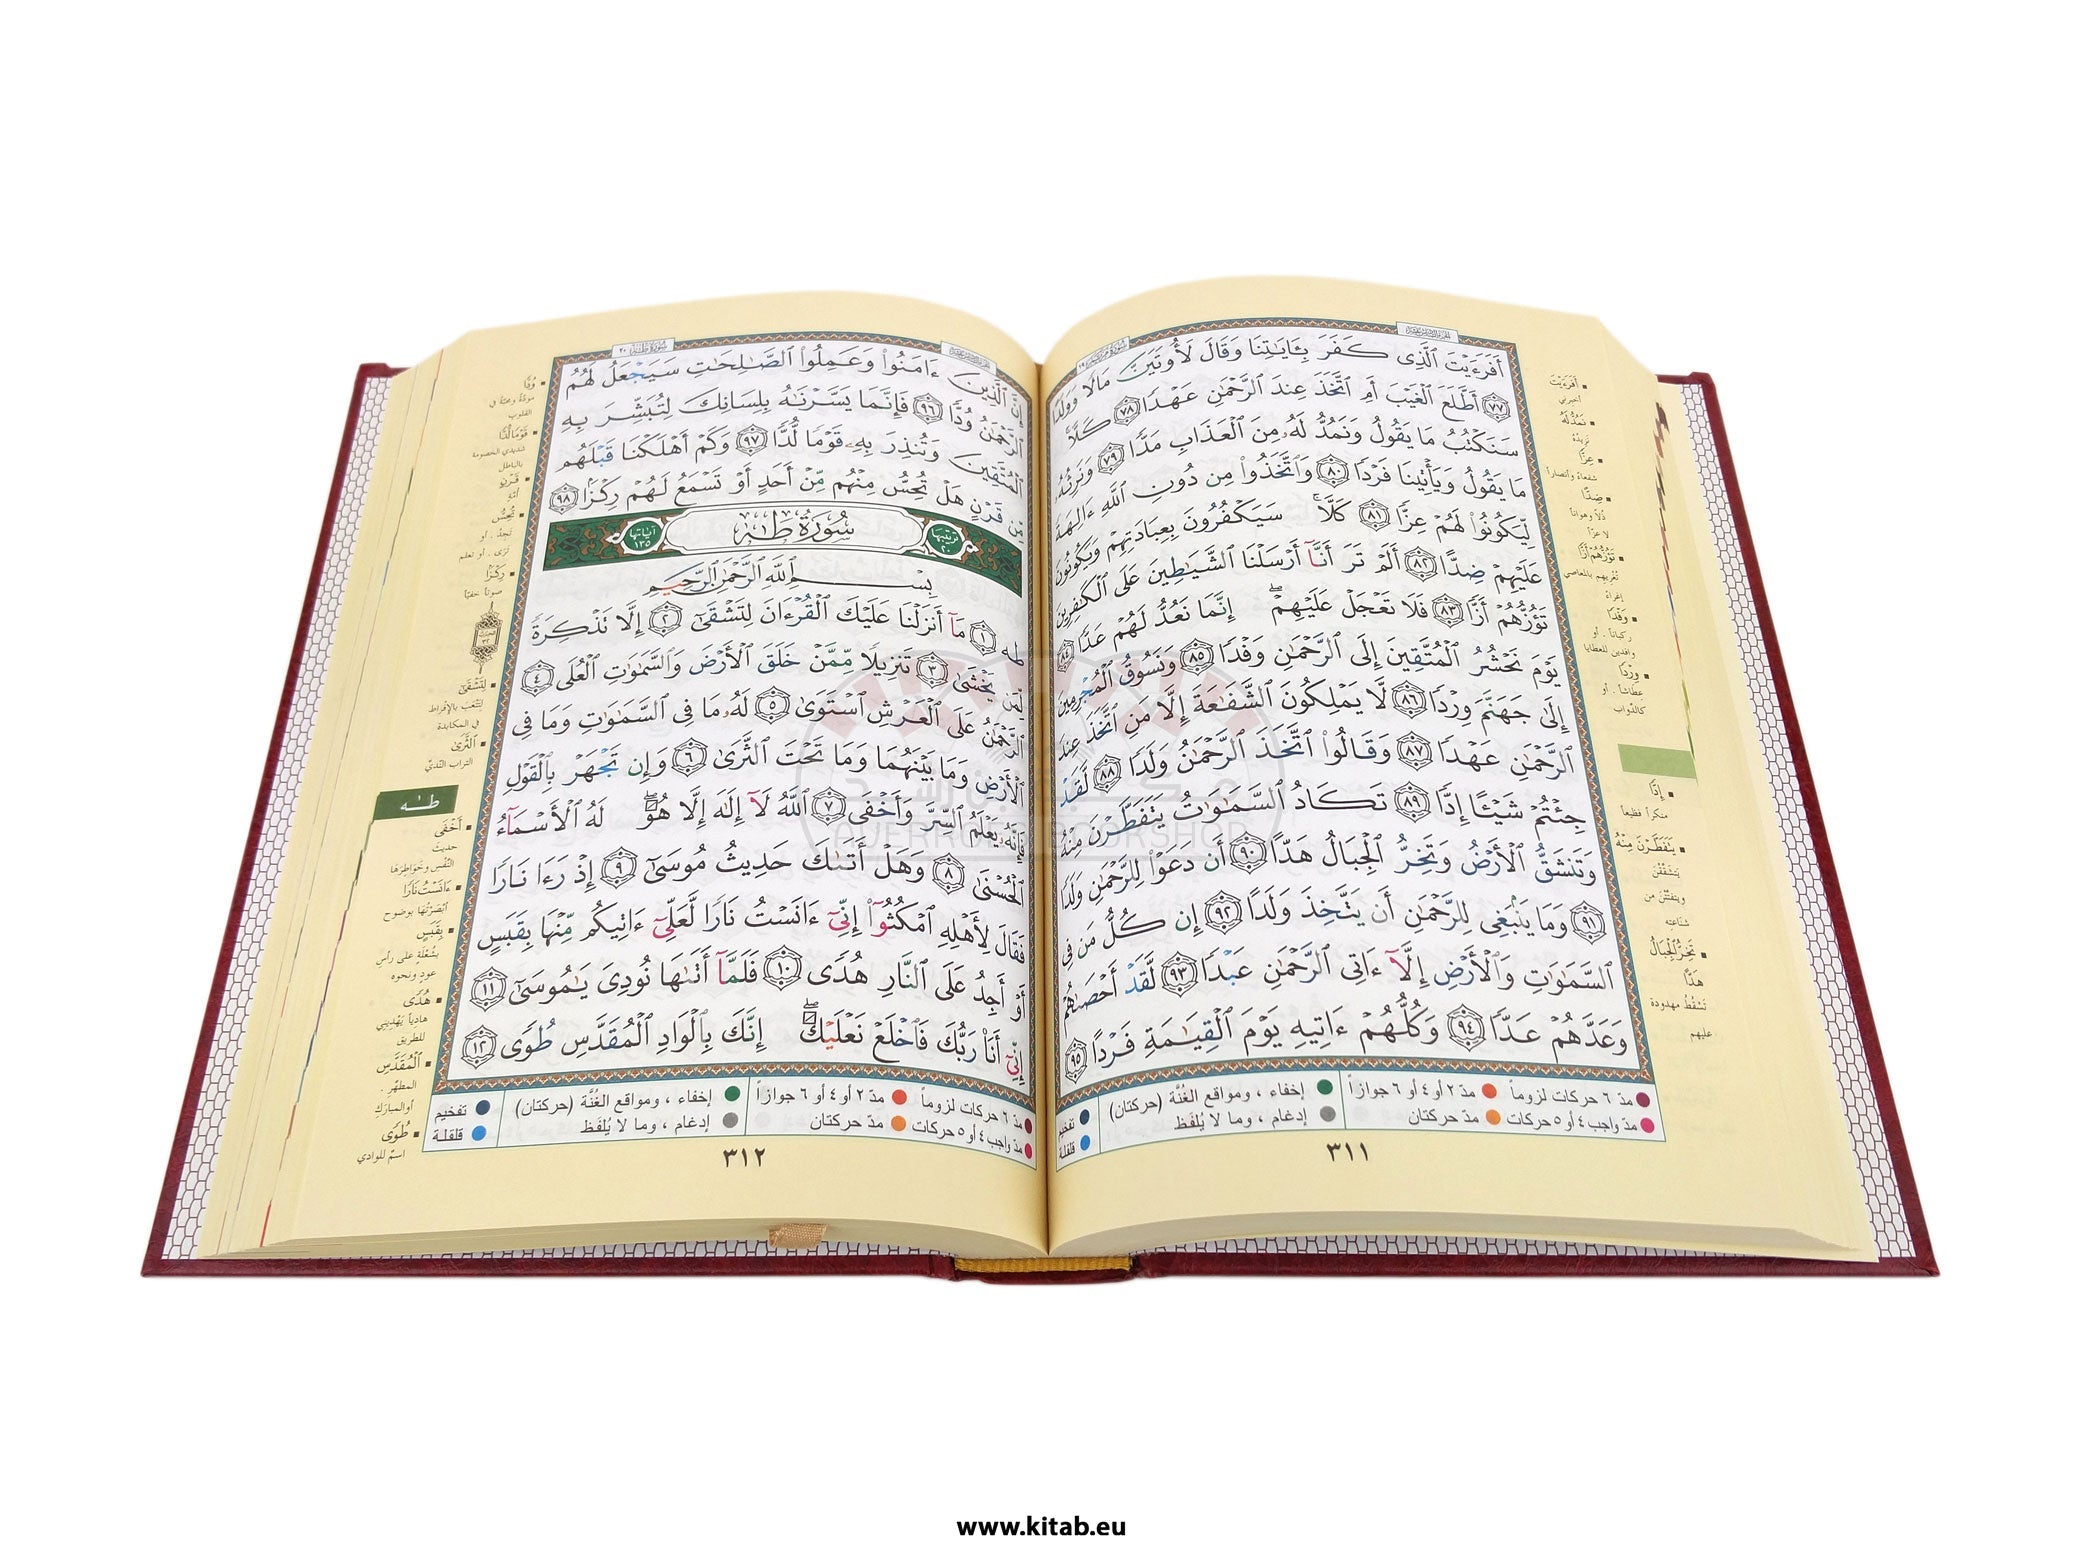 أَفَرَءَيْتَ ٱلَّذِى كَفَرَ بِـَٔايَٰتِنَا وَقَالَ لَأُوتَيَنَّ مَالًا وَوَلَدًا
٧٧ أَطَّلَعَ ٱلْغَيْبَ أَمِ ٱتَّخَذَ عِندَ ٱلرَّحْمَٰنِ عَهْدًا ٧٨ كَلَّا
سَنَكْتُبُ مَا يَقُولُ وَنَمُدُّ لَهُۥ مِنَ ٱلْعَذَابِ مَدًّا ٧٩ وَنَرِثُهُۥ
مَا يَقُولُ وَيَأْتِينَا فَرْدًا ٨٠ وَٱتَّخَذُوا۟ مِن دُونِ ٱللَّهِ ءَالِهَةً
لِّيَكُونُوا۟ لَهُمْ عِزًّا ٨١ كَلَّا ۚ سَيَكْفُرُونَ بِعِبَادَتِهِمْ وَيَكُونُونَ
عَلَيْهِمْ ضِدًّا ٨٢ أَلَمْ تَرَ أَنَّآ أَرْسَلْنَا ٱلشَّيَٰطِينَ عَلَى ٱلْكَٰفِرِينَ
تَؤُزُّهُمْ أَزًّا ٨٣ فَلَا تَعْجَلْ عَلَيْهِمْ ۖ إِنَّمَا نَعُدُّ لَهُمْ عَدًّا ٨٤
يَوْمَ نَحْشُرُ ٱلْمُتَّقِينَ إِلَى ٱلرَّحْمَٰنِ وَفْدًا ٨٥ وَنَسُوقُ ٱلْمُجْرِمِينَ
إِلَىٰ جَهَنَّمَ وِرْدًا ٨٦ لَّا يَمْلِكُونَ ٱلشَّفَٰعَةَ إِلَّا مَنِ ٱتَّخَذَ عِندَ
ٱلرَّحْمَٰنِ عَهْدًا ٨٧ وَقَالُوا۟ ٱتَّخَذَ ٱلرَّحْمَٰنُ وَلَدًا ٨٨ لَّقَدْ
جِئْتُمْ شَيْـًٔا إِدًّا ٨٩ تَكَادُ ٱلسَّمَٰوَٰتُ يَتَفَطَّرْنَ مِنْهُ
وَتَنشَقُّ ٱلْأَرْضُ وَتَخِرُّ ٱلْجِبَالُ هَدًّا ٩٠ أَن دَعَوْا۟ لِلرَّحْمَٰنِ وَلَدًا
٩١ وَمَا يَنۢبَغِى لِلرَّحْمَٰنِ أَن يَتَّخِذَ وَلَدًا ٩٢ إِن كُلُّ مَن فِى
ٱلسَّمَٰوَٰتِ وَٱلْأَرْضِ إِلَّآ ءَاتِى ٱلرَّحْمَٰنِ عَبْدًا ٩٣ لَّقَدْ أَحْصَىٰهُمْ
وَعَدَّهُمْ عَدًّا ٩٤ وَكُلُّهُمْ ءَاتِيهِ يَوْمَ ٱلْقِيَٰمَةِ فَرْدًا ٩٥
أَفَرَءَيْتَ
أخبرني
نَمُدُّ لَهُ
نزيدُهُ
عِزًّا
شفعاءَ وأنصاراً
ضِدًّا
ذُلاً وهواناً
لا عزّاً
تَؤُزُّهُمْ أَزًّا
تُغْريهم بالمعاصي
إغراءً
وَفْدًا
ركباناً . أو
وافدين للعطايا
وِرْدًا
عِطاشاً . أو
كالدَّواب
إِدًّا
منكراً فظيعاً
يَتَفَطَّرْنَ مِنْهُ
يَتَشَقَّقْنَ
ويتفتَّتْنَ من
شناعته
تَخِرُّ ٱلْجِبَالُ
هَدًّا
تَسْقُطُ مهدودة
عليهم
مدّ ٦ حركات لزوماً مدّ ٢ أو ٤ أو ٦ جوازاً إخفاء ، ومواقع الغُنَّة (حركتان) تفخيم
مدّ واجب ٤ أو ٥ حركات مدّ حركتان إدغام ، وما لا يُلفَظ قلقلة
٣١١
سُورَةُ طه ٢٠
إِنَّ ٱلَّذِينَ ءَامَنُوا۟ وَعَمِلُوا۟ ٱلصَّٰلِحَٰتِ سَيَجْعَلُ لَهُمُ
ٱلرَّحْمَٰنُ وُدًّا ٩٦ فَإِنَّمَا يَسَّرْنَٰهُ بِلِسَانِكَ لِتُبَشِّرَ بِهِ
ٱلْمُتَّقِينَ وَتُنذِرَ بِهِۦ قَوْمًا لُّدًّا ٩٧ وَكَمْ أَهْلَكْنَا قَبْلَهُم
مِّن قَرْنٍ هَلْ تُحِسُّ مِنْهُم مِّنْ أَحَدٍ أَوْ تَسْمَعُ لَهُمْ رِكْزًا ٩٨
ترتيبها ٢٠ سُورَةُ طه آياتها ١٣٥
بِسْمِ ٱللَّهِ ٱلرَّحْمَٰنِ ٱلرَّحِيمِ
طه ١ مَآ أَنزَلْنَا عَلَيْكَ ٱلْقُرْءَانَ لِتَشْقَىٰٓ ٢ إِلَّا تَذْكِرَةً
لِّمَن يَخْشَىٰ ٣ تَنزِيلًا مِّمَّنْ خَلَقَ ٱلْأَرْضَ وَٱلسَّمَٰوَٰتِ ٱلْعُلَى ٤
ٱلرَّحْمَٰنُ عَلَى ٱلْعَرْشِ ٱسْتَوَىٰ ٥ لَهُۥ مَا فِى ٱلسَّمَٰوَٰتِ وَمَا فِى
ٱلْأَرْضِ وَمَا بَيْنَهُمَا وَمَا تَحْتَ ٱلثَّرَىٰ ٦ وَإِن تَجْهَرْ بِٱلْقَوْلِ
فَإِنَّهُۥ يَعْلَمُ ٱلسِّرَّ وَأَخْفَى ٧ ٱللَّهُ لَآ إِلَٰهَ إِلَّا هُوَ ۖ لَهُ ٱلْأَسْمَآءُ
ٱلْحُسْنَىٰ ٨ وَهَلْ أَتَىٰكَ حَدِيثُ مُوسَىٰٓ ٩ إِذْ رَءَا نَارًا
فَقَالَ لِأَهْلِهِ ٱمْكُثُوٓا۟ إِنِّىٓ ءَانَسْتُ نَارًا لَّعَلِّىٓ ءَاتِيكُم مِّنْهَا بِقَبَسٍ
أَوْ أَجِدُ عَلَى ٱلنَّارِ هُدًى ١٠ فَلَمَّآ أَتَىٰهَا نُودِىَ يَٰمُوسَىٰٓ ١١
إِنِّىٓ أَنَا۠ رَبُّكَ فَٱخْلَعْ نَعْلَيْكَ ۖ إِنَّكَ بِٱلْوَادِ ٱلْمُقَدَّسِ طُوًى ١٢
وُدًّا
مودَّةً ومحبَّةً في
القلوب
قَوْمًا لُّدًّا
شديدي الخصومة
بالباطل
قَرْنٍ
أمّةٍ
تُحِسُّ
تجدُ . أو
تَرَى . أو تعلم
رِكْزًا
صوتاً خفيّاً
لِتَشْقَىٰ
لِتَتْعَبَ بالإفراط
في المكابدة
ٱلثَّرَىٰ
التراب النَّديِّ
طه
أَخْفَى
حديثَ
النَّفْسِ وخَواطِرَها
ءَانَسْتُ نَارًا
أبْصَرْتُها بوضوح
بِقَبَسٍ
بشُعْلةٍ على رأسِ
عودٍ ونحوه
هُدًى
هادياً يَهْديني
للطريق
ٱلْمُقَدَّسِ
المطهَّر .
أو المبارَك
طُوًى
اسمٌ للوادي
مدّ ٦ حركات لزوماً مدّ ٢ أو ٤ أو ٦ جوازاً إخفاء ، ومواقع الغُنَّة (حركتان) تفخيم
مدّ واجب ٤ أو ٥ حركات مدّ حركتان إدغام ، وما لا يُلفَظ قلقلة
٣١٢
AVERROES BOOKSHOP
www.kitab.eu